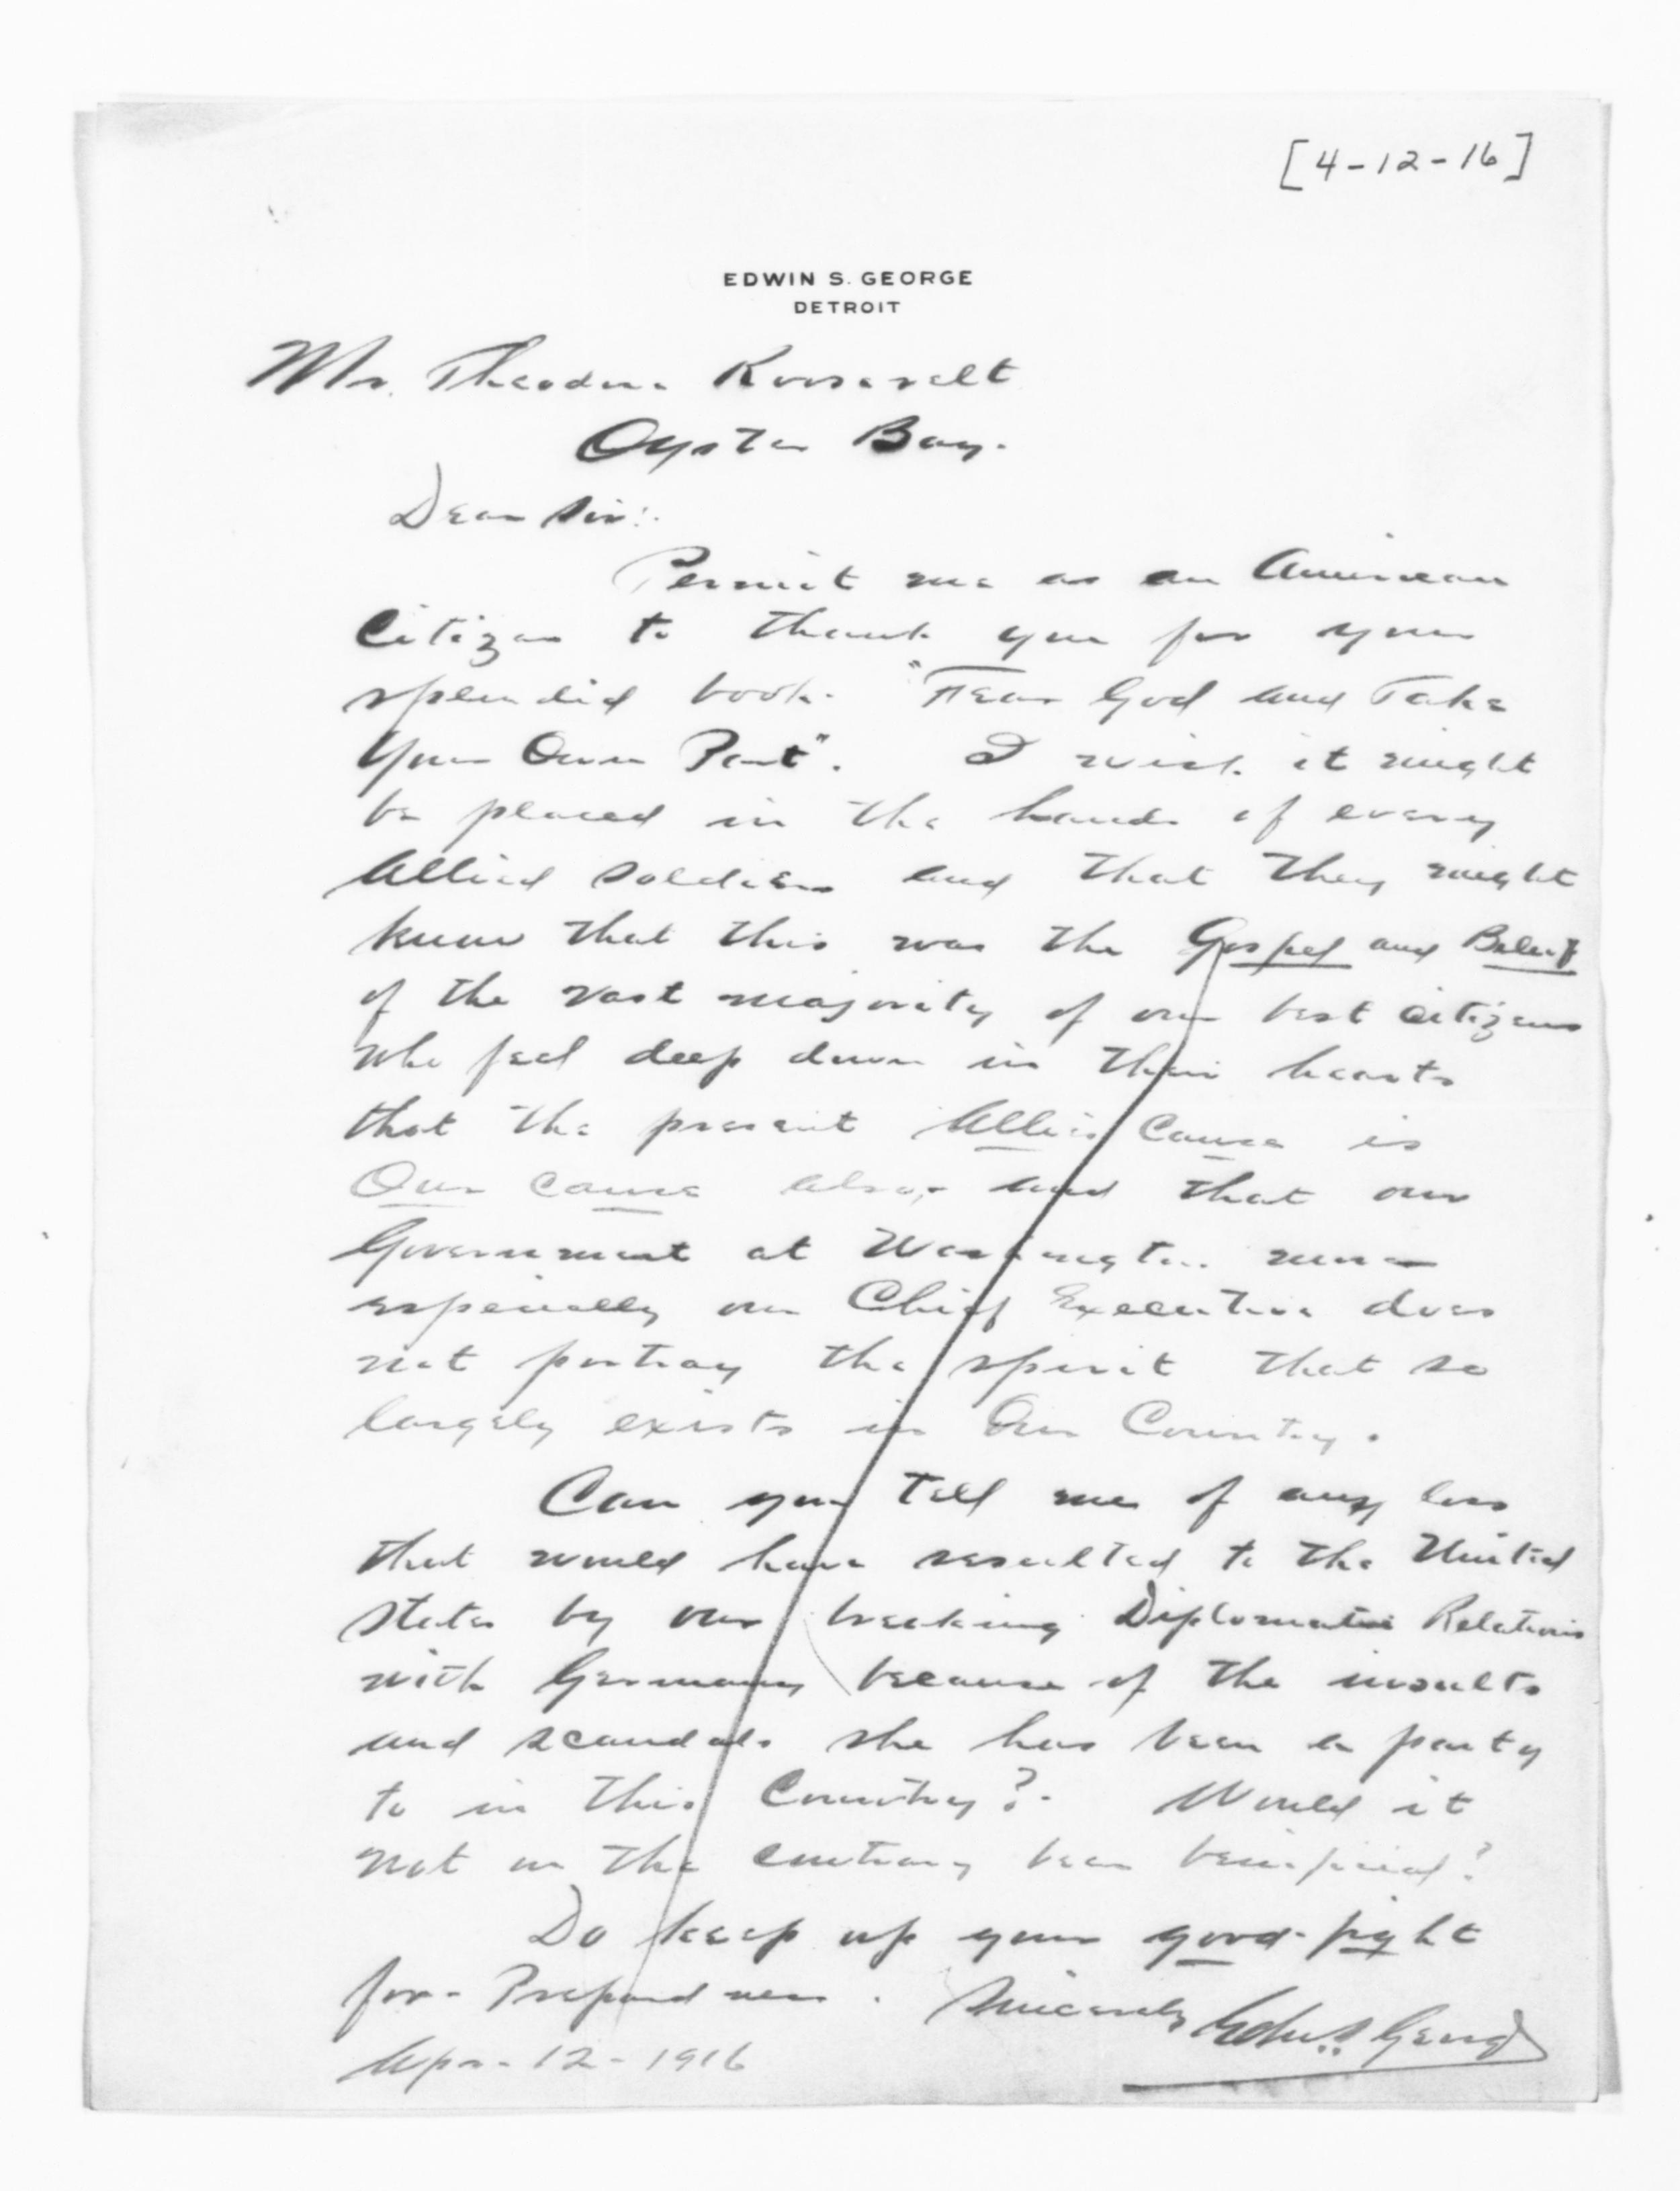 [4-12-16]
EDWIN S. GEORGE
DETROIT
Mr. Theodore Roosevelt
Oyster Bay.
Dear Sir:
Permit me as an American
Citizen to thank you for your
splendid book. "Fear God and Take
Your Own Part". I wish it might
be placed in the hands of every
Allied soldier and that they might
know that this was the Gospel and Belief
of the vast majority of our best citizens
who feel deep down in their hearts
that the present Allies Cause is
Our Cause also, and that our
Government at Washington more
especially our Chief Executive does
not portray the spirit that so
largely exists in Our Country.
Can you tell me of any loss
that would have resulted to the United
States by our breaking Diplomatic Relations
with Germany because of the insults
and scandals she has been a party
to in this Country? Would it
not on the contrary been beneficial?
Do keep up your good fight
for - Preparedness. Sincerely Edwin S. George
Apr - 12 - 1916